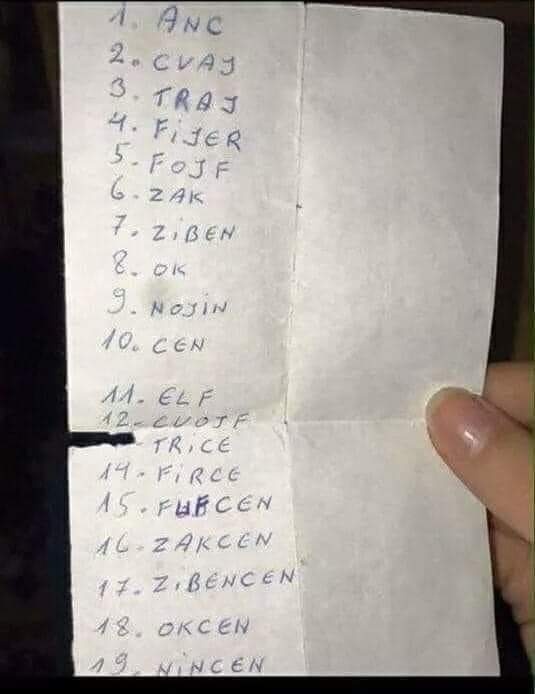 1. ANC
2. CVAJ
3. TRAJ
4. FiJER
5. FOJF
6. ZAK
7. ZiBEN
8. OK
9. NOJiN
10. CEN
11. ELF
12. CVOJF
TRiCE
14. FiRCE
15. FUFCEN
16. ZAKCEN
17. ZiBENCEN
18. OKCEN
19. NiNCEN